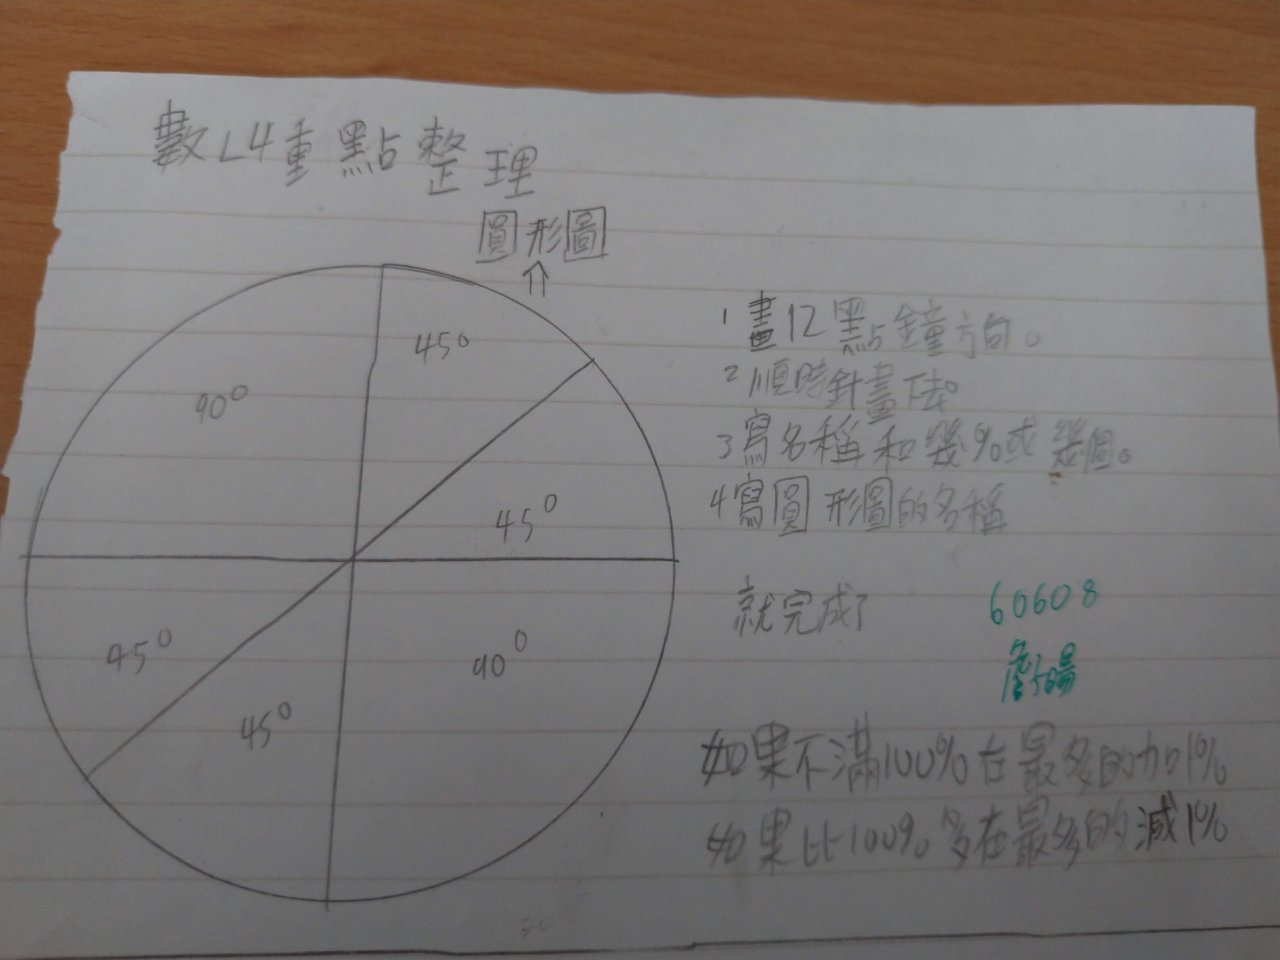 數L4重點整理
圓形圖
⇑
45°
90°
45°
45°
45°
90°
1畫12點鐘方向。
2順時針畫下去。
3寫名稱和幾%或幾個。
4寫圓形圖的名稱
就完成了
60608
如果不滿100%在最多的加1%
如果比100%多在最多的減1%